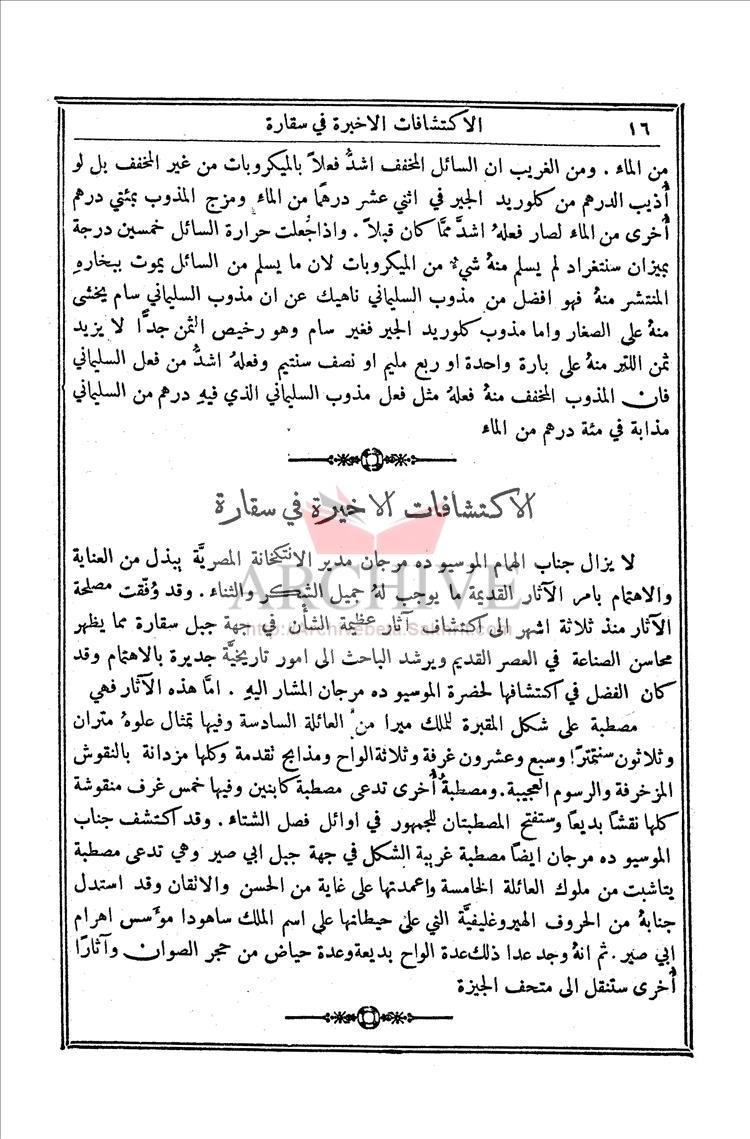 ١٦
الاكتشافات الاخيرة في سقارة
من الماء . ومن الغريب ان السائل المخفف اشدُّ فعلاً بالميكروبات من غير المخفف بل لو
أُذيب الدرهم من كلوريد الجير في اثني عشر درهمًا من الماء ومزج المذوب بمئتي درهم
أُخرى من الماء لصار فعلهُ اشدَّ ممَّا كان قبلاً . واذا جُعلت حرارة السائل خمسين درجة
بميزان سنتغراد لم يسلم منهُ شيءٌ من الميكروبات لان ما يسلم من السائل يموت ببخارهِ
المنتشر منهُ فهو افضل من مذوب السليماني ناهيك عن ان مذوب السليماني سام يخشى
منهُ على الصغار واما مذوب كلوريد الجير فغير سام وهو رخيص الثمن جدًّا لا يزيد
ثمن اللتر منهُ على بارة واحدة او ربع مليم او نصف سنتيم وفعلهُ اشدُّ من فعل السليماني
فان المذوب المخفف منهُ فعلهُ مثل فعل مذوب السليماني الذي فيهِ درهم من السليماني
مذابة في مئة درهم من الماء
الاكتشافات الاخيرة في سقارة
لا يزال جناب الهمام الموسيو ده مرجان مدير الانتكخانة المصريَّة يبذل من العناية
والاهتمام بامر الآثار القديمة ما يوجب لهُ جميل الشكر والثناء . وقد وُفّقت مصلحة
الآثار منذ ثلاثة اشهر الى اكتشاف آثار عظيمة الشأن في جهة جبل سقارة مما يظهر
محاسن الصناعة في العصر القديم ويرشد الباحث الى امور تاريخيَّة جديرة بالاهتمام وقد
كان الفضل في اكتشافها لحضرة الموسيو ده مرجان المشار اليهِ . امَّا هذه الآثار فهي
مصطبة على شكل المقبرة للملك ميرا من العائلة السادسة وفيها تمثال علوهُ متران
وثلاثون سنتمترًا وسبع وعشرون غرفة وثلاثة الواح ومذابح تقدمة وكلها مزدانة بالنقوش
المزخرفة والرسوم العجيبة. ومصطبةٌ أُخرى تدعى مصطبة كابنين وفيها خمس غرف منقوشة
كلها نقشًا بديعًا وستفتح المصطبتان للجمهور في اوائل فصل الشتاء . وقد اكتشف جناب
الموسيو ده مرجان ايضًا مصطبة غريبة الشكل في جهة جبل ابي صير وهي تدعى مصطبة
يتاشبت من ملوك العائلة الخامسة واعمدتها على غاية من الحسن والاتقان وقد استدل
جنابهُ من الحروف الهيروغليفيَّة التي على حيطانها على اسم الملك ساهودا مؤسس اهرام
ابي صير . ثم انهُ وجد عدا ذلك عدة الواح بديعة وعدة حياض من حجر الصوان وآثارًا
أُخرى ستنقل الى متحف الجيزة
ARCHIVE
http://Archivebeta.Sakhrit.com